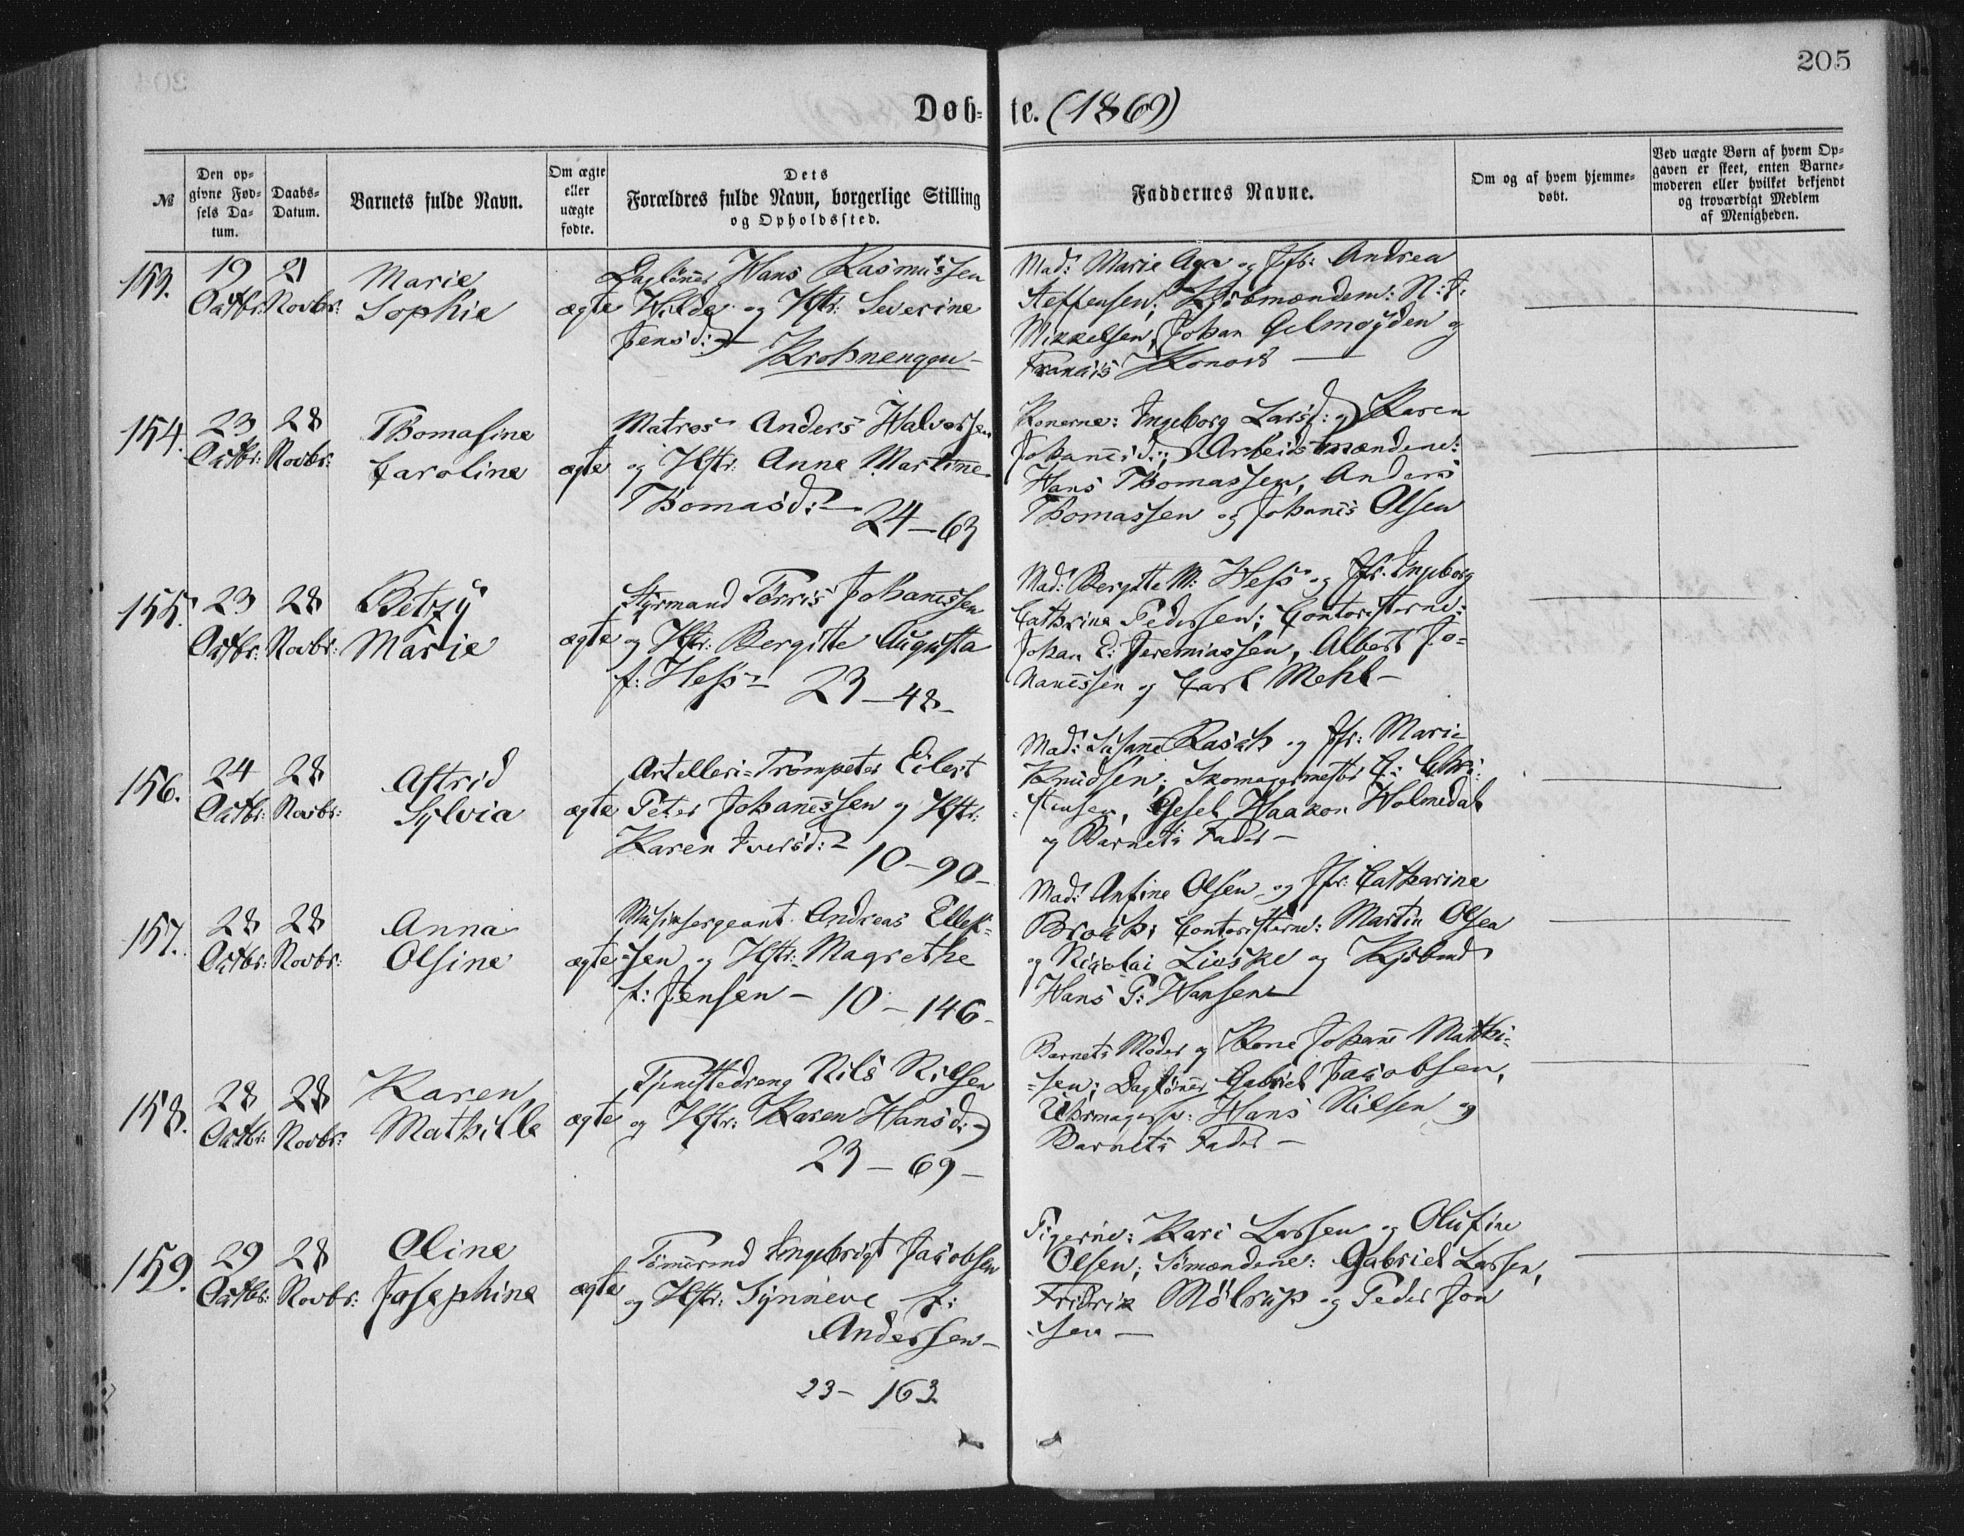 205
Døb- te. (1869)
№
Den op-
givne Fød-
sels Da-
tum.
Daabs-
Datum.
Barnets fulde Navn.
Om ægte
eller
uægte
fødte.
Dets
Forældres fulde Navn, borgerlige Stilling
og Opholdssted.
Faddernes Navne.
Om og af hvem hjemme-
døbt.
Ved uægte Børn af hvem Op-
gaven er skeet, enten Barne-
moderen eller hvilket bekjendt
og troværdigt Medlem
af Menigheden.
153.
19
Octbr:
21
Novbr:
Marie
Sophie
ægte
Dagløner Hans Rasmussen
Wilde og Hstr: Severine
Jensd:
Krohnengen
Mad: Marie Age og Jfr: Andrea
Steffensen; Kjøbmændene: N: J:
Mikkelsen, Johan Gelmeyden og
Francis Konow
154.
23
Octbr:
28
Novbr:
Thomasine
Caroline
ægte
Matros Anders Halvorsen
og Hstr: Anne Martine
Thomasd:
24-63
Konerne: Ingeborg Larsd: og Karen
Johannesd:; Arbeidsmændene:
Hans Thomassen, Anders
Thomassen og Johannes Olsen
155.
23
Octbr:
28
Novbr:
Betzy
Marie
ægte
Styrmand Tørris Johannessen
og Hstr: Bergitte Augusta
f: Hess
23-48-
Mad: Bergitte M: Hess og Jfr: Ingeborg
Cathrine Pedersen; Contoristerne:
Johan E: Jeremiassen, Albert Jo-
hannessen og Carl Mehl-
156.
24
Octbr:
28
Novbr:
Astrid
Sylvia
ægte
Artelleri-Trompeter Eilert
Peter Johannessen og Hstr:
Karen Iversd:
10-90-
Mad: Susanne Rasch og Jfr: Marie
Knudsen; Skomagermester Chri-
stensen, Haakon Holmedal
og Barnets Fader-
157.
28
Octbr:
28
Novbr:
Anna
Olsine
ægte
Musiksergeant Andreas Ellef-
-sen og Hstr: Magrethe
f: Jensen - 10-146-
Mad: Anfine Olsen og Jfr: Catharine
Broch; Contoristerne: Martin Olsen
og Nicolai og Kjøbmd
Hans P: Hansen
158.
28
Octbr:
28
Novbr:
Karen
Mathilde
ægte
Tjenstedreng Nils Nilsen
og Hstr: Karen Hansd:
23-69-
Barnets Moder og Kone Johanne Mathi-
-sen; Dagløner Gabriel Jacobsen,
Uhrmagersv: Hans Nilsen og
Barnets Fader-
159.
29
Octbr:
28
Novbr:
Oline
Josephine
ægte
Tømmermd Ingebrigt Jacobsen
og Hstr: Synneve f:
Andersen-
23-163
Pigerne: Kari Larsen og Olufine
Olsen; Sømændene: Gabriel Larsen,
Fridrik Møltrup og Peder Jon
-sen-